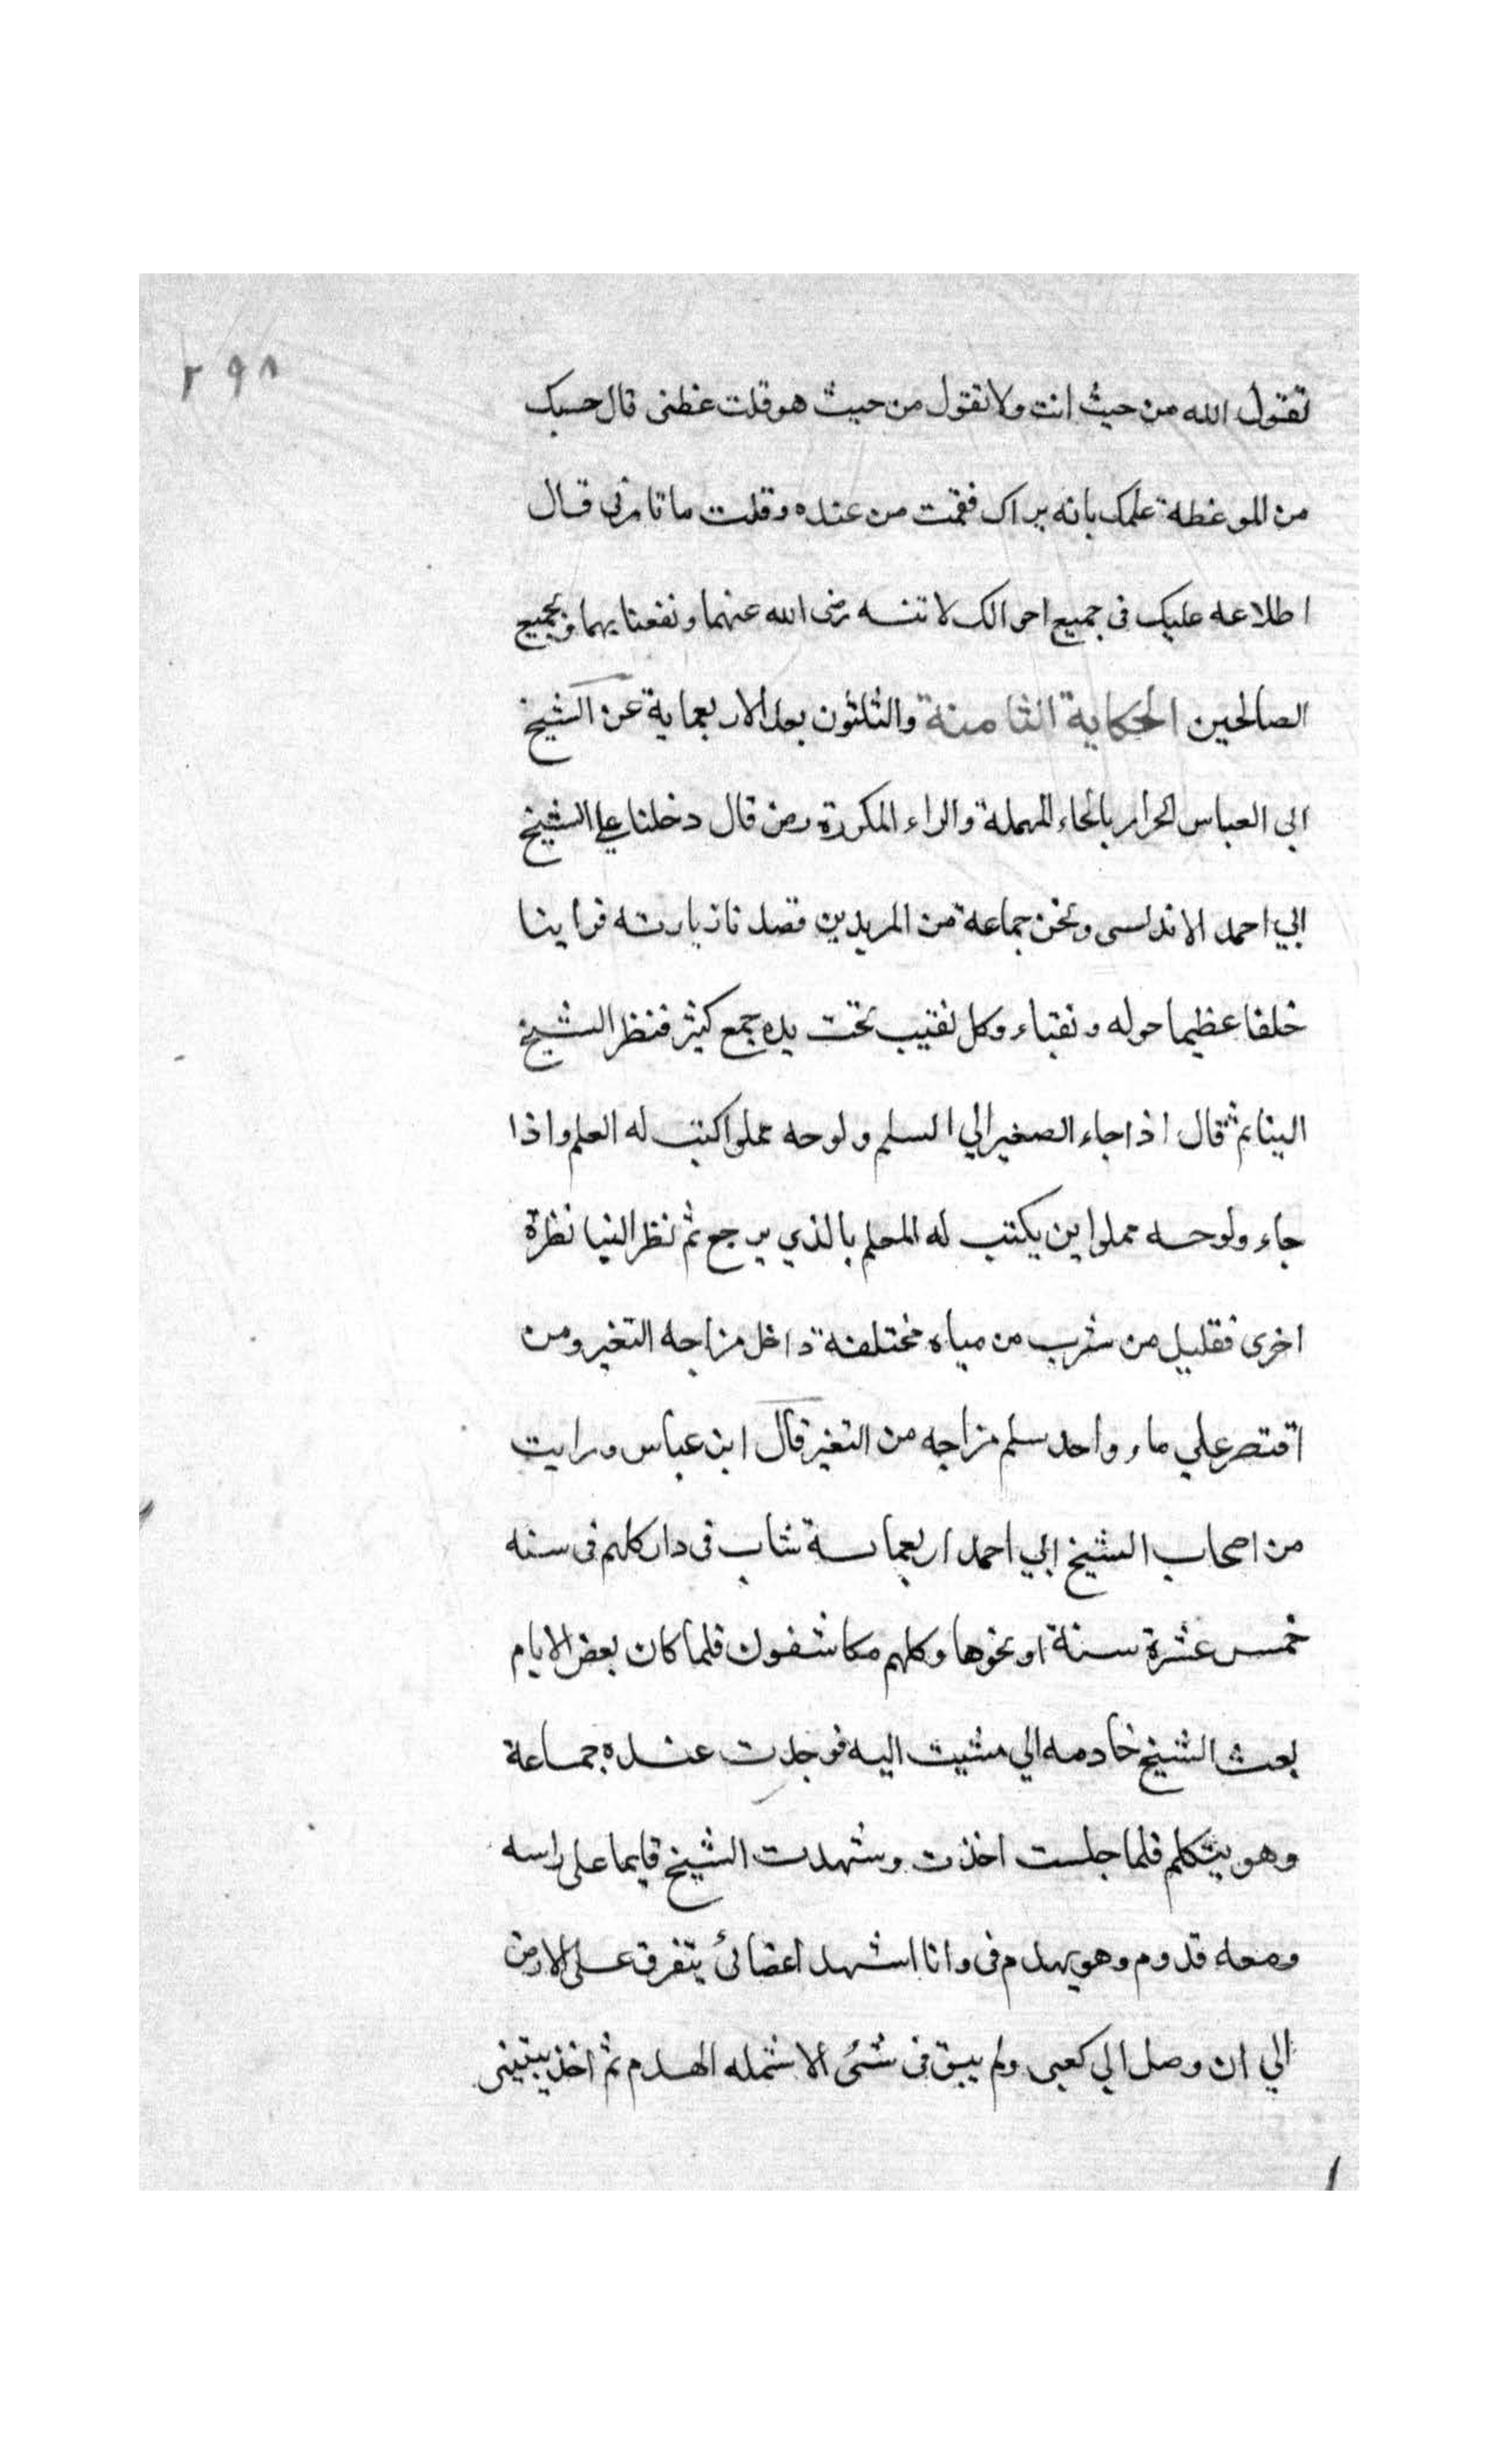 ٢٩٨
تقول الله من حيث انت ولا تقول من حيث هو قلت عظنى قال حسبك
من الموعظة علمك بانه يراك فقمت من عنده وقلت ما تامرنى قال
اطلاعه عليك فى جميع احوالك لا تنسه رضى الله عنهما ونفعنا بهما وبجميع
الصالحين الحكاية الثامنة والثلثون بعد الاربعماية عن الشيخ
ابى العباس الحرار بالحاء المهملة والراء المكررة رضى قال دخلنا على الشيخ
ابي احمد الاندلسى ونحن جماعة من المريدين قصدنا زيارته فراينا
خلقا عظيما حوله ونقباء وكل نقيب تحت يده جمع كثير فنظر الشيخ
الينا ثم قال اذا جاء الصغير الي السلم ولوحه مملوا كتب له العلم واذا
جاء ولوحه مملوا اين يكتب له المعلم بالذي يرجع ثم نظر الينا نظرة
اخرى فقليل من شرب من مياه مختلفة داخل مزاجه التغير ومن
اقتصر علي ماء واحد سلم مزاجه من التغير قال ابن عباس ورايت
من اصحاب الشيخ ابي احمد اربعماية شاب فى دار كلهم فى سنه
خمس عشرة سنة او نحوها وكلهم مكاشفون فلما كان بعض الايام
بعث الشيخ خادمه الي مشيت اليه فوجدت عنده جماعة
وهو يتكلم فلما جلست اخذت وشهدت الشيخ قايما على راسه
ومعه قدوم وهو يهدم فى وانا اشهد اعضائ يتفرق على الارض
الي ان وصل الي كعبى ولم يبق فى شئ الا شمله الهدم ثم اخذ يبنينى